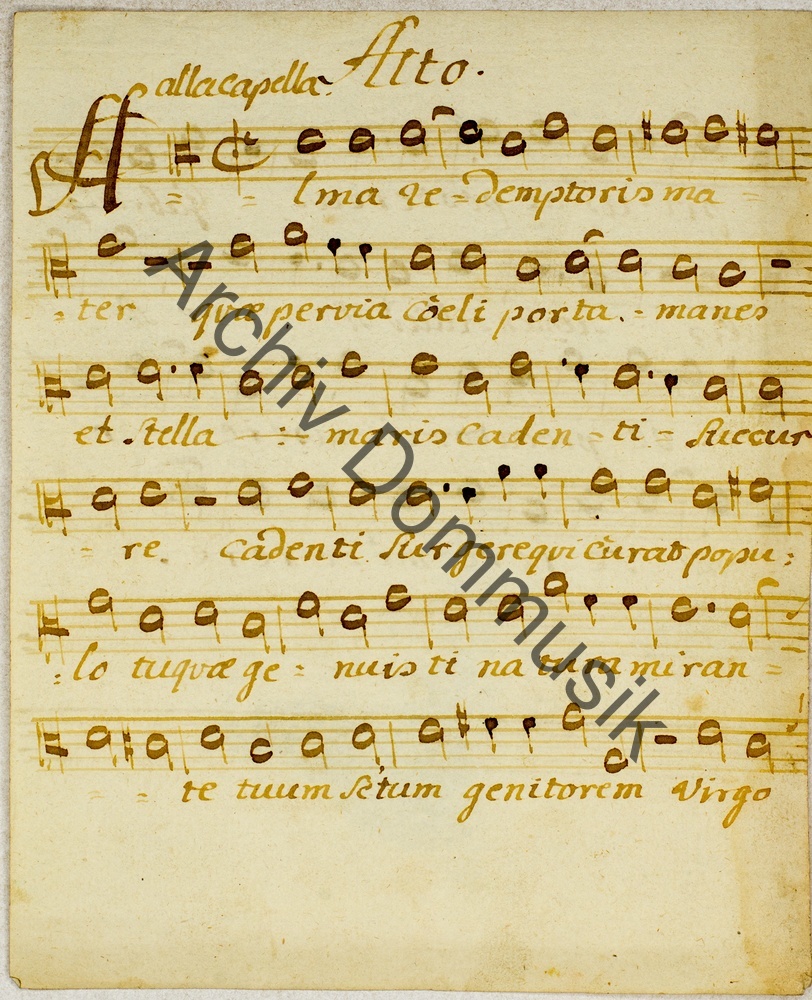 alla capella. Alto.
Alma Redemptoris ma =
= ter quæ pervia Cœli porta. = manes
et Stella maris Caden = ti = Succur
= re. Cadenti Surgere qui Curat popu =
= lo tu quæ ge = nuisti natura miran =
= = te tuum Sctum genitorem Virgo
Archiv Dommusik